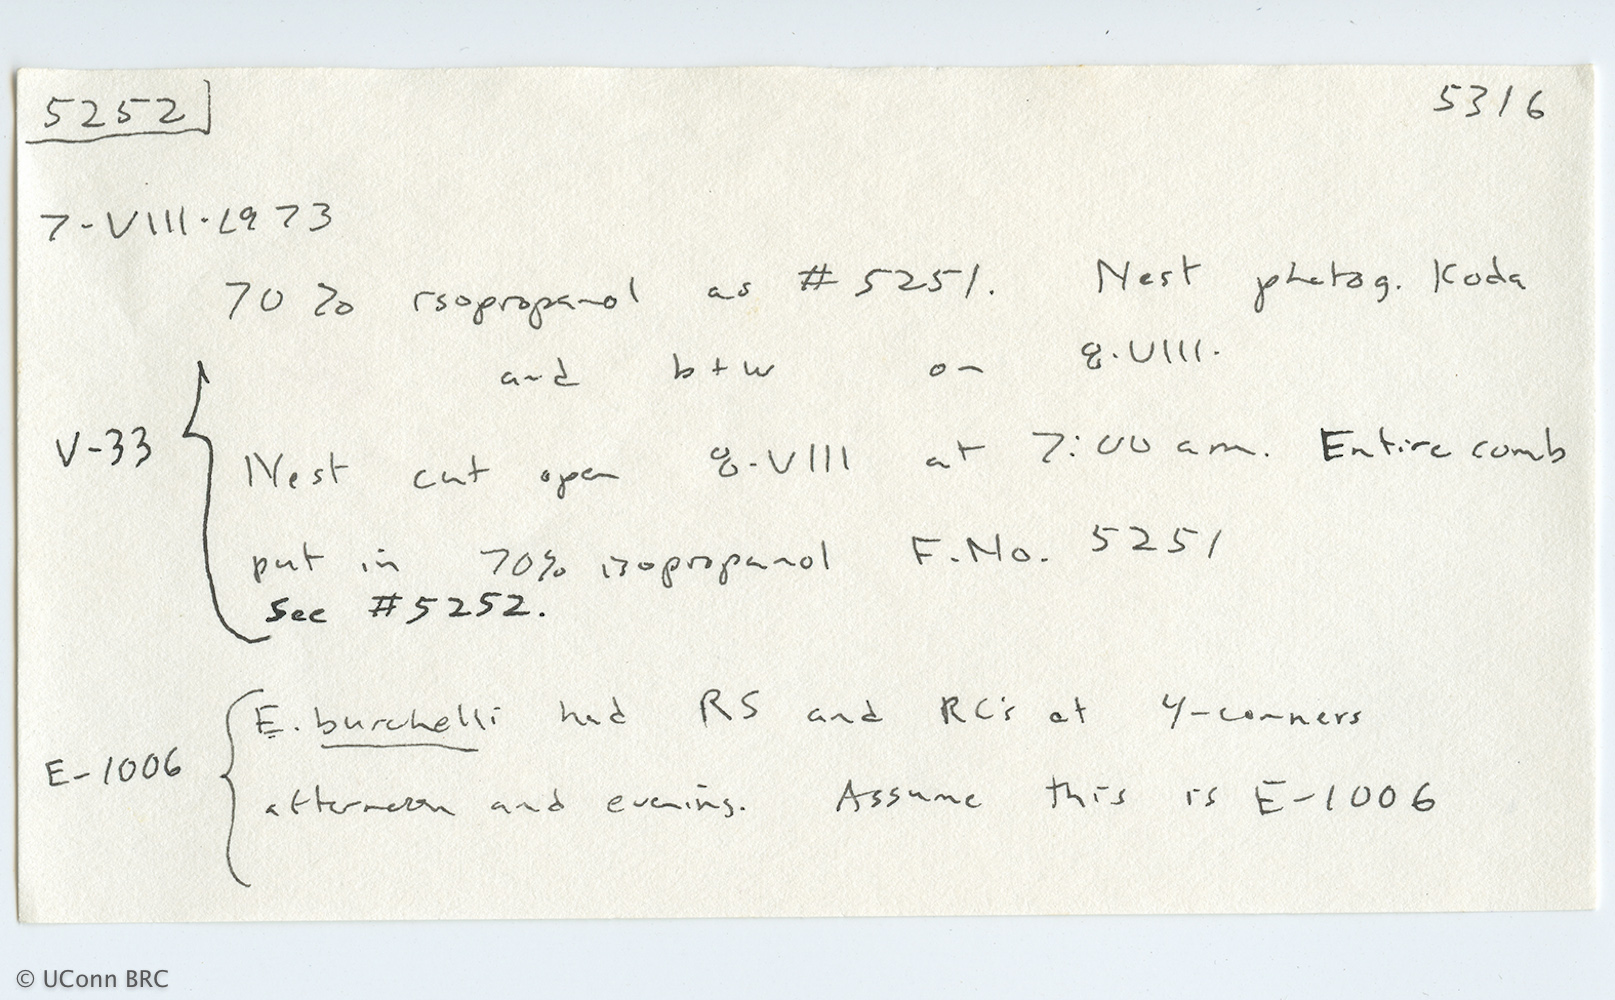 5252 5316
7-VIII-1973
70% isopropanol as # 5251. Nest photog. Koda
and b+w on 8.VIII.
V-33
Nest cut open 8.VIII at 7:00 am. Entire comb
put in 70% isopropanol F.No. 5251
See #5252.
E. burchelli had RS and RC's at 4-corners
E-1006
afternoon and evening. Assume this is E-1006
© UConn BRC